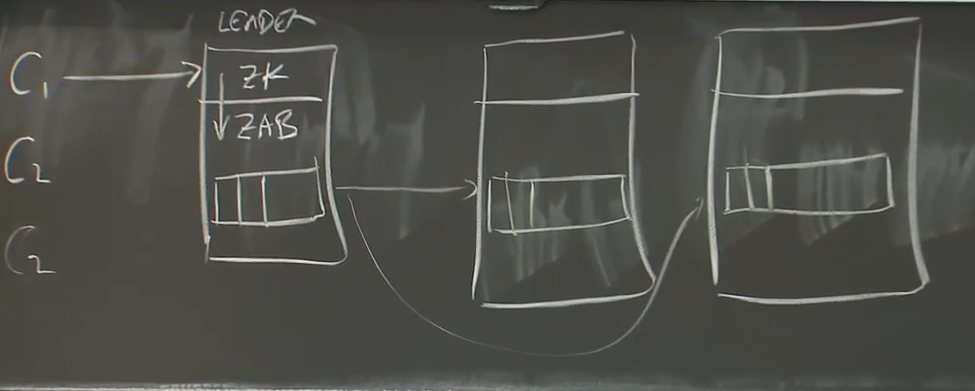 LEADER
C1
ZK
ZAB
C2
C2